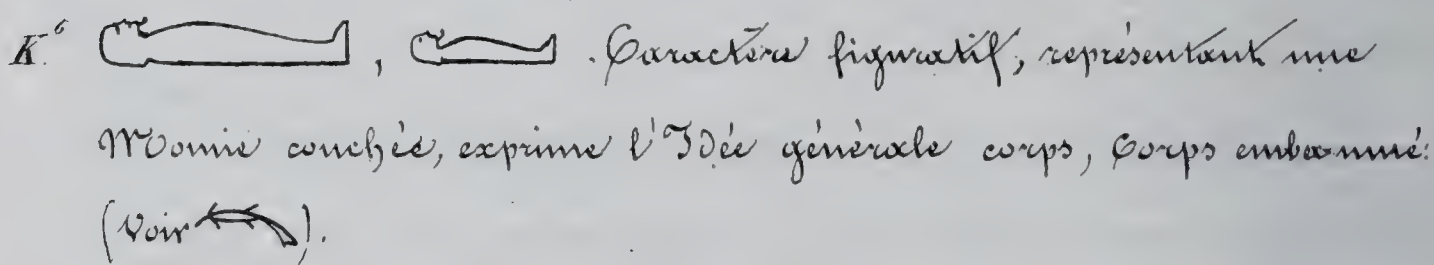 K.⁶ , . Caractère figuratif, représentant une
Momie couchée, exprime l'Idée générale corps, Corps embaumé:
(Voir ).